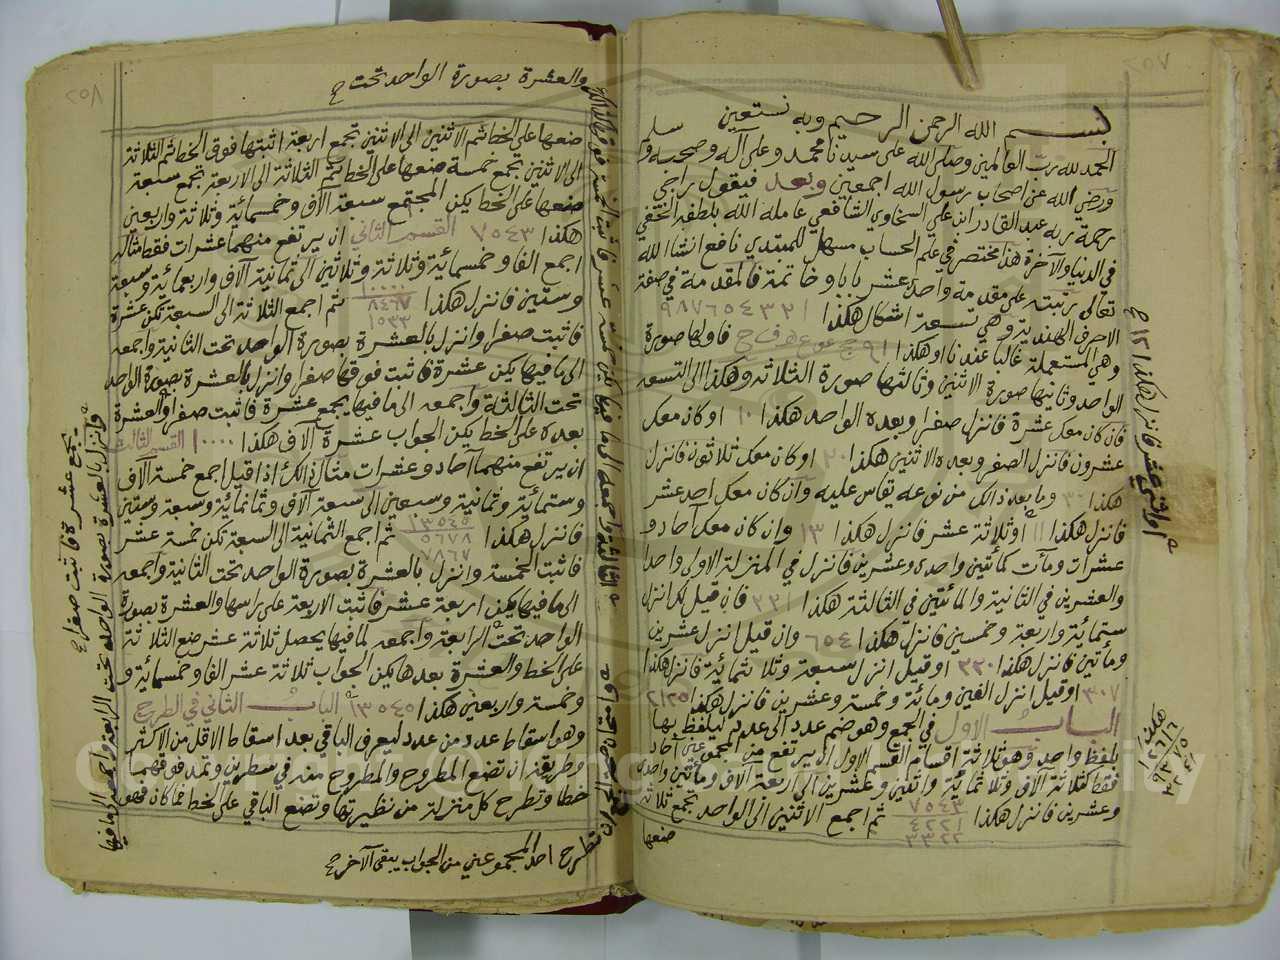 بسم الله الرحمن الرحيم وبه نستعين
الحمد لله رب العالمين وصلى الله على سيدنا محمد وعلى آله وصحبه وسلم
ورضي الله عن اصحاب رسول الله اجمعين وبعد فيقول راجي
رحمة ربه عبد القادر ابن علي السخاوي الشافعي عامله الله بلطفه الخفي
في الدنيا والآخرة هذا مختصر في علم الحساب سهل للمبتدي نافع انشا الله
تعالى رتبته على مقدمة واحدى عشر بابا وخاتمة فالمقدمة في صفة
الاحرف الهندية وهي تسعة اشكال هكذا ١ ٢ ٣ ٤ ٥ ٦ ٧ ٨ ٩
وهي المستعملة غالبا عندنا او هكذا فاولها صورة
الواحد وثانيها صورة الاثنين وثالثها صورة الثلاثة وهكذا الى التسعة
فان كان معك عشرة فانزل صفرا وبعده الواحد هكذا ١٠ او كان معك
عشرون فانزل الصفر وبعده الاثنين هكذا ٢٠ او كان معك ثلاثون فانزل
هكذا ٣٠ وما بعد ذالك من نوعه يقاس عليه وان كان معك احد عشر
فانزل هكذا ١١ او ثلاثة عشر فانزل هكذا ١٣ وان كان معك آحاد و
عشرات ومآت كمأتين واحدى وعشرين فانزل في المنزلة الاولى واحدا
والعشرين في الثانية والمأتين في الثالثة هكذا ٢٢١ فان قيل لك انزل
ستمائة واربعة وخمسين فانزل هكذا ٦٥٤ وان قيل انزل عشرين
ومأتين فانزل هكذا ٢٢٠ او قيل انزل سبعة وثلاثمائة فانزل هكذا
٣٠٧ او قيل انزل الفين ومائة وخمسة وعشرين فانزل هكذا ٢١٢٥
الباب الاول في الجمع وهو ضم عدد الى عدد ليلفظ بها
بلفظ واحد وهو ثلاثة اقسام القسم الاول ان يرتفع من المجموعين آحاد
فقط كثلاثة آلاف وثلاثمائة واثنين وعشرين الى اربعة آلاف ومأتين واحدى
وعشرين فانزل هكذا ٧٥٤٣ ٤٢٢١ ٣٣٢٢ ثم اجمع الاثنين الى الواحد تجمع ثلاثة
ضعها
او اثني عشر فانزل هكذا ١٢ صح
هكذا
والعشرة بصورة الواحد تحت صح
ضعها على الخط ثم الاثنين الى الاثنين تجمع اربعة اثبتها فوق الخط ثم الثلاثة
الى الاثنين تجمع خمسة ضعها على الخط ثم الثلاثة الى الاربعة تجمع سبعة
ضعها على الخط يكن المجتمع سبعة آلاف وخمسمائة وثلاثة واربعين
هكذا ٧٥٤٣ القسم الثاني ان يرتفع منهما عشرات فقط مثاله
اجمع الفا وخمسمائة وثلاثة وثلاثين الى ثمانية آلاف واربعمائة وسبعة
وستين فانزل هكذا ١٠٠٠٠ ٨٤٦٧ ١٥٣٣ ثم اجمع الثلاثة الى السبعة تكن عشرة
فاثبت صفرا وانزل بالعشرة بصورة الواحد تحت الثانية واجمعه
الى ما فيها يكن عشرة فاثبت فوقها صفرا وانزل بالعشرة بصورة الواحد
تحت الثالثة واجمعه الى ما فيها يجمع عشرة فاثبت صفرا والعشرة
بعده على الخط يكن الجواب عشرة آلاف هكذا ١٠٠٠٠ القسم الثالث
ان يرتفع منهما آحاد وعشرات مثال ذالك اذا قيل اجمع خمسة آلاف
وستمائة وثمانية وسبعين الى سبعة آلاف وثمانمائة وسبعة وستين
فانزل هكذا ١٣٥٤٥ ٥٦٧٨ ٧٨٦٧ ثم اجمع الثمانية الى السبعة تكن خمسة عشر
فاثبت الخمسة وانزل بالعشرة بصورة الواحد تحت الثانية واجمعه
الى ما فيها يكن اربعة عشر فاثبت الاربعة على راسها والعشرة بصورة
الواحد تحت الرابعة واجمعه لما فيها يحصل ثلاثة عشر ضع الثلاثة
على الخط والعشرة بعدها يكن الجواب ثلاثة عشر الفا وخمسمائة و
وخمسة واربعين هكذا ١٣٥٤٥ الباب الثاني في الطرح
وهو اسقاط عدد من عدد ليعرف الباقي بعد اسقاط الاقل من الاكثر
وطريقه ان تضع المطروح والمطروح منه في سطرين وتمد فوقهما
خطا وتطرح كل منزلة من نظيرتها وتضع الباقي على الخط فما كان فهو
تطرح احد المجموعين من الجواب يبقى الآخر صح
وانزل بالعشرة بصورة الواحد تحت الرابعة واجمعه الى ما فيها
يجمع عشرة فاثبت صفرا صح